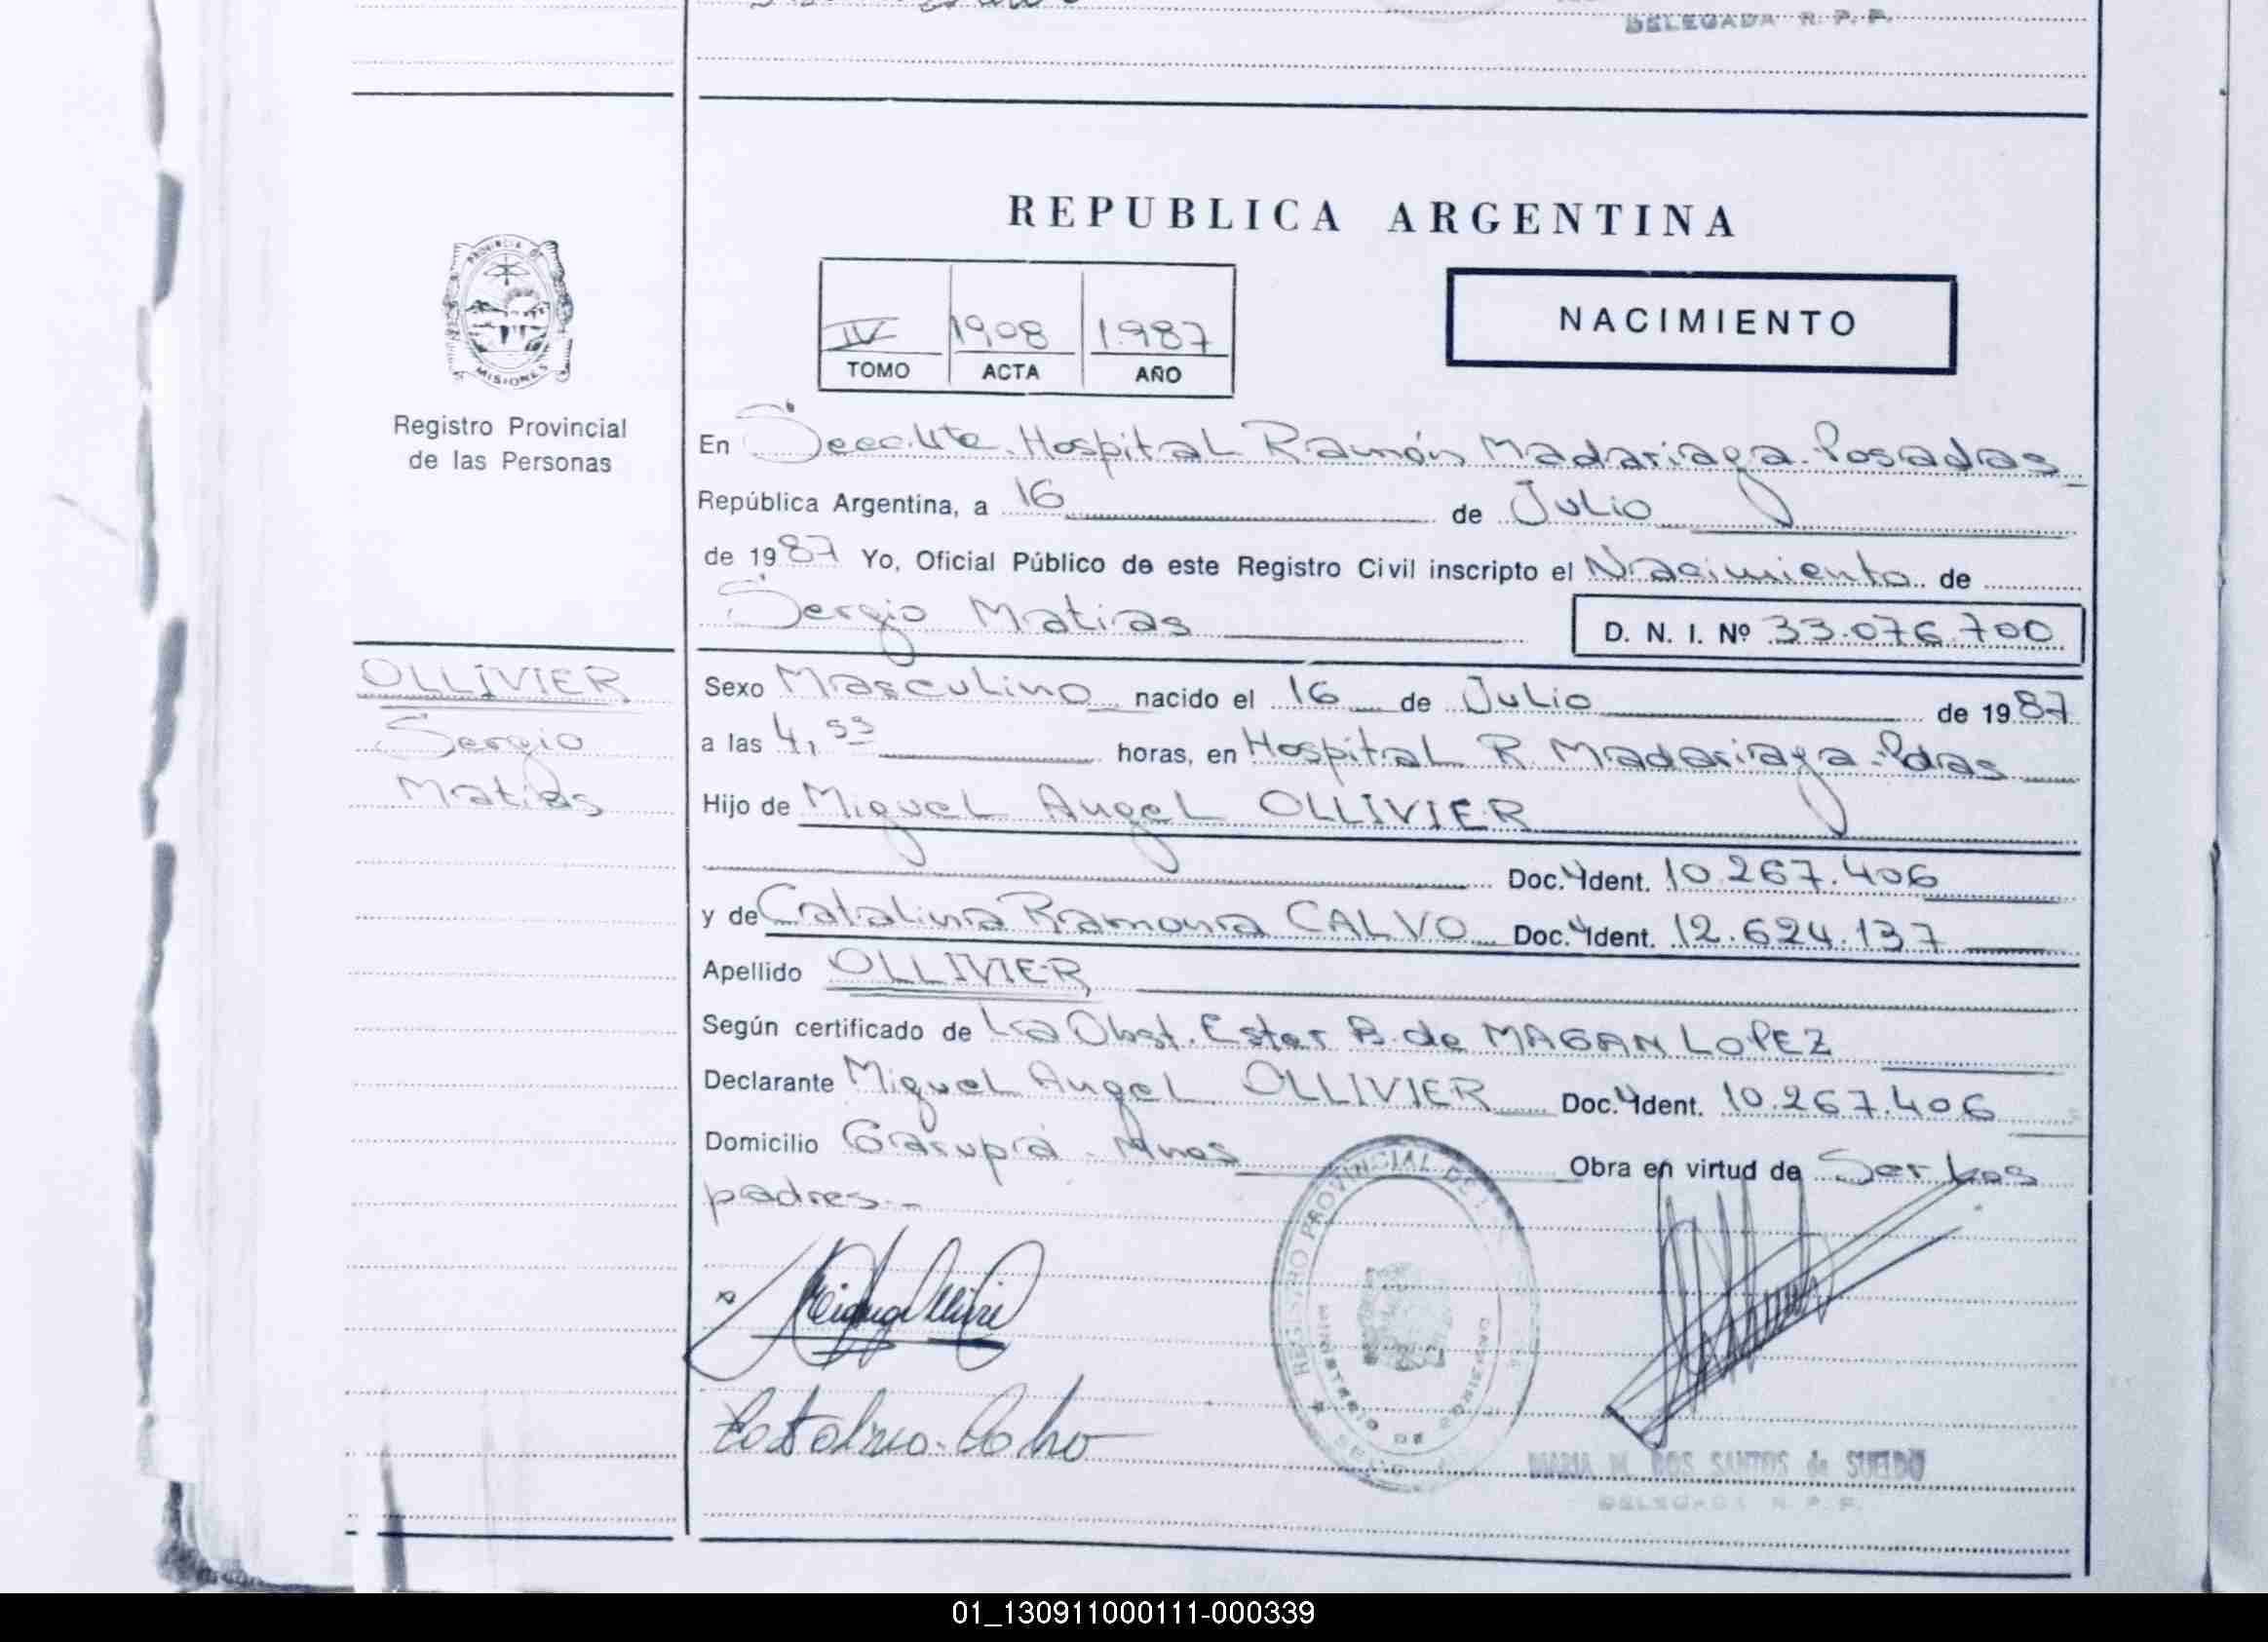 DELEGADA R. P. P.
REPUBLICA ARGENTINA
PROVINCIA DE
MISIONES
IV 1908 1987
TOMO ACTA AÑO
NACIMIENTO
Registro Provincial
de las Personas
En Secc. Hospital Ramón Madariaga-Posadas
República Argentina, a 16 de Julio
de 1987 Yo, Oficial Público de este Registro Civil inscripto el Nacimiento de
Sergio Matias D. N. I. Nº 33.076.700
OLLIVIER
Sergio
Matias
Sexo Masculino nacido el 16 de Julio de 1987
a las 4,55 horas, en Hospital R. Madariaga-Pdas
Hijo de Miguel Angel OLLIVIER
Doc. Ident. 10.267.406
y de Catalina Ramona CALVO Doc. Ident. 12.624.137
Apellido OLLIVIER
Según certificado de La Obst. Ester B. de MAGAN LOPEZ
Declarante Miguel Angel OLLIVIER Doc. Ident. 10.267.406
Domicilio Garupá - Mnes Obra en virtud de Ser los
padres.-
REGISTRO PROVINCIAL DE
MINISTERIO DE GOBIERNO
Catalina Calvo
MARIA M. DOS SANTOS de SUELDO
DELEGADA R. P. P.
01_130911000111-000339